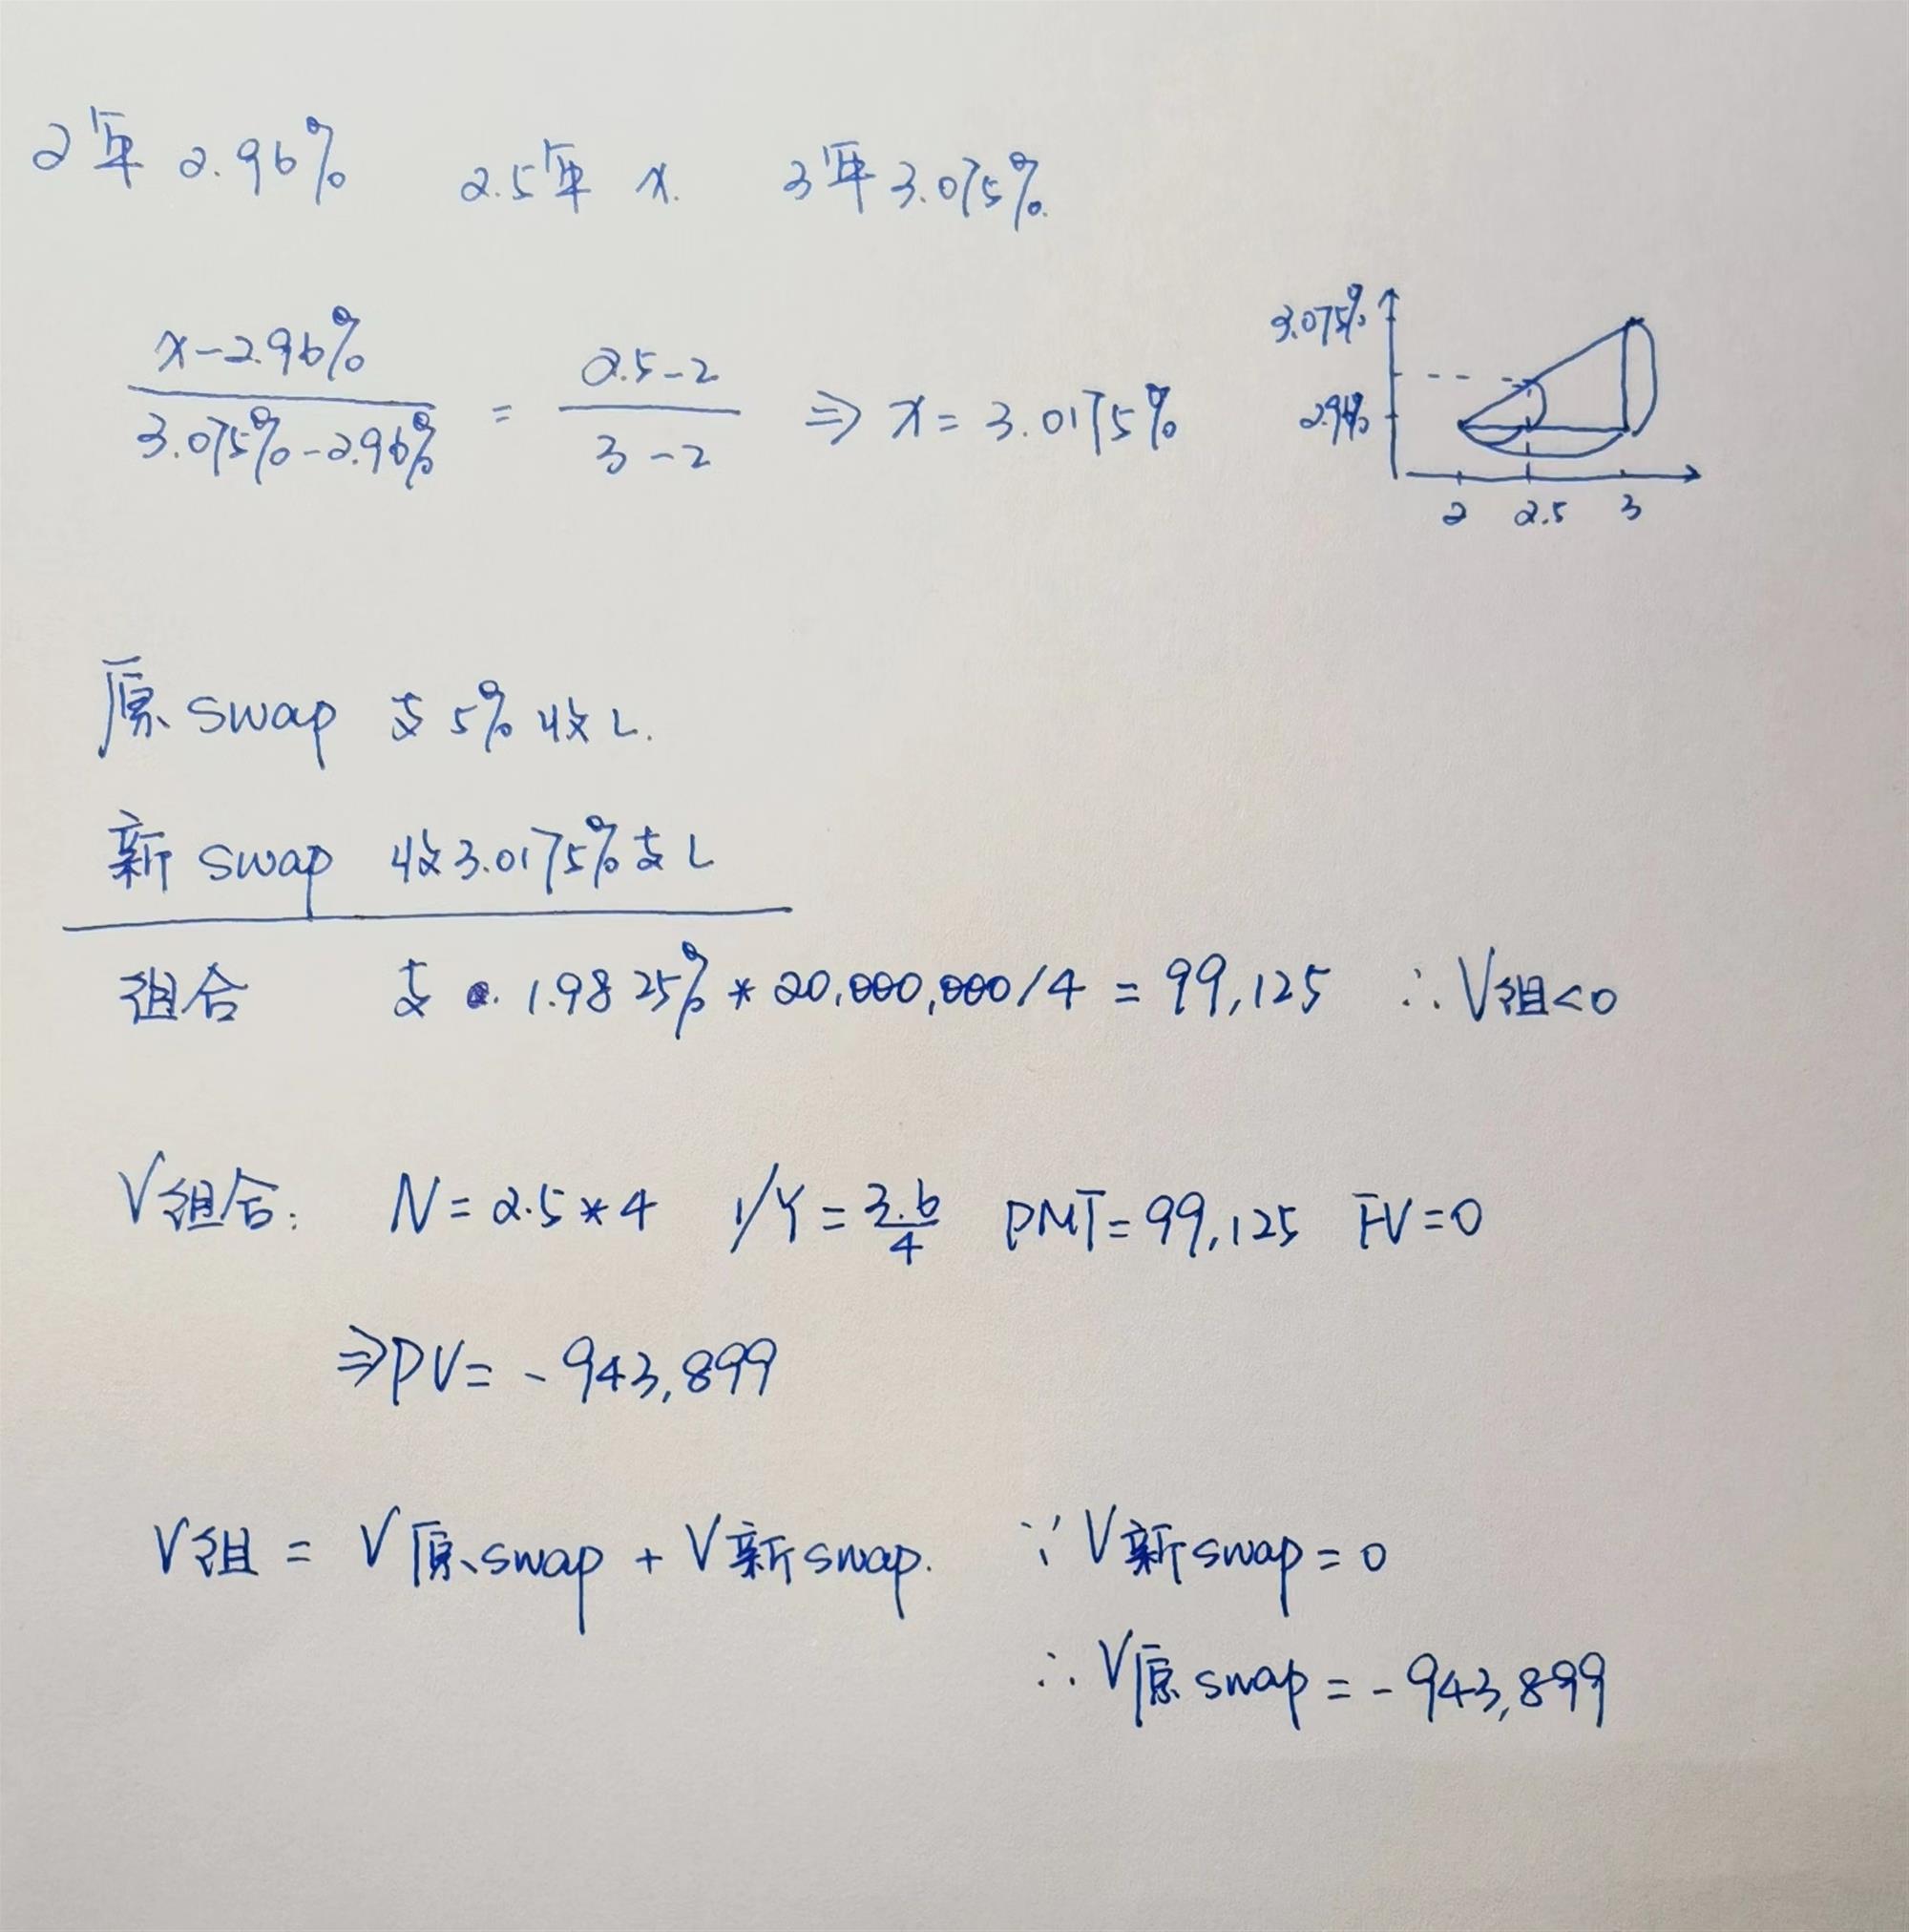 2年 2.96% 2.5年 x. 3年 3.075%.
(x-2.96%)/(3.075%-2.96%) = (2.5-2)/(3-2) ⇒ x= 3.0175%
3.075%
2.96%
2 2.5 3
原 swap 支 5% 收 L.
新 swap 收 3.0175% 支 L
组合 支 1.9825% * 20,000,000/4 = 99,125 ∴ V组<0
V组合: N = 2.5*4 I/Y = 3.6/4 PMT = 99,125 FV=0
⇒PV= -943,899
V组 = V原swap + V新swap. ∵ V新swap = 0
∴ V原 swap = -943,899